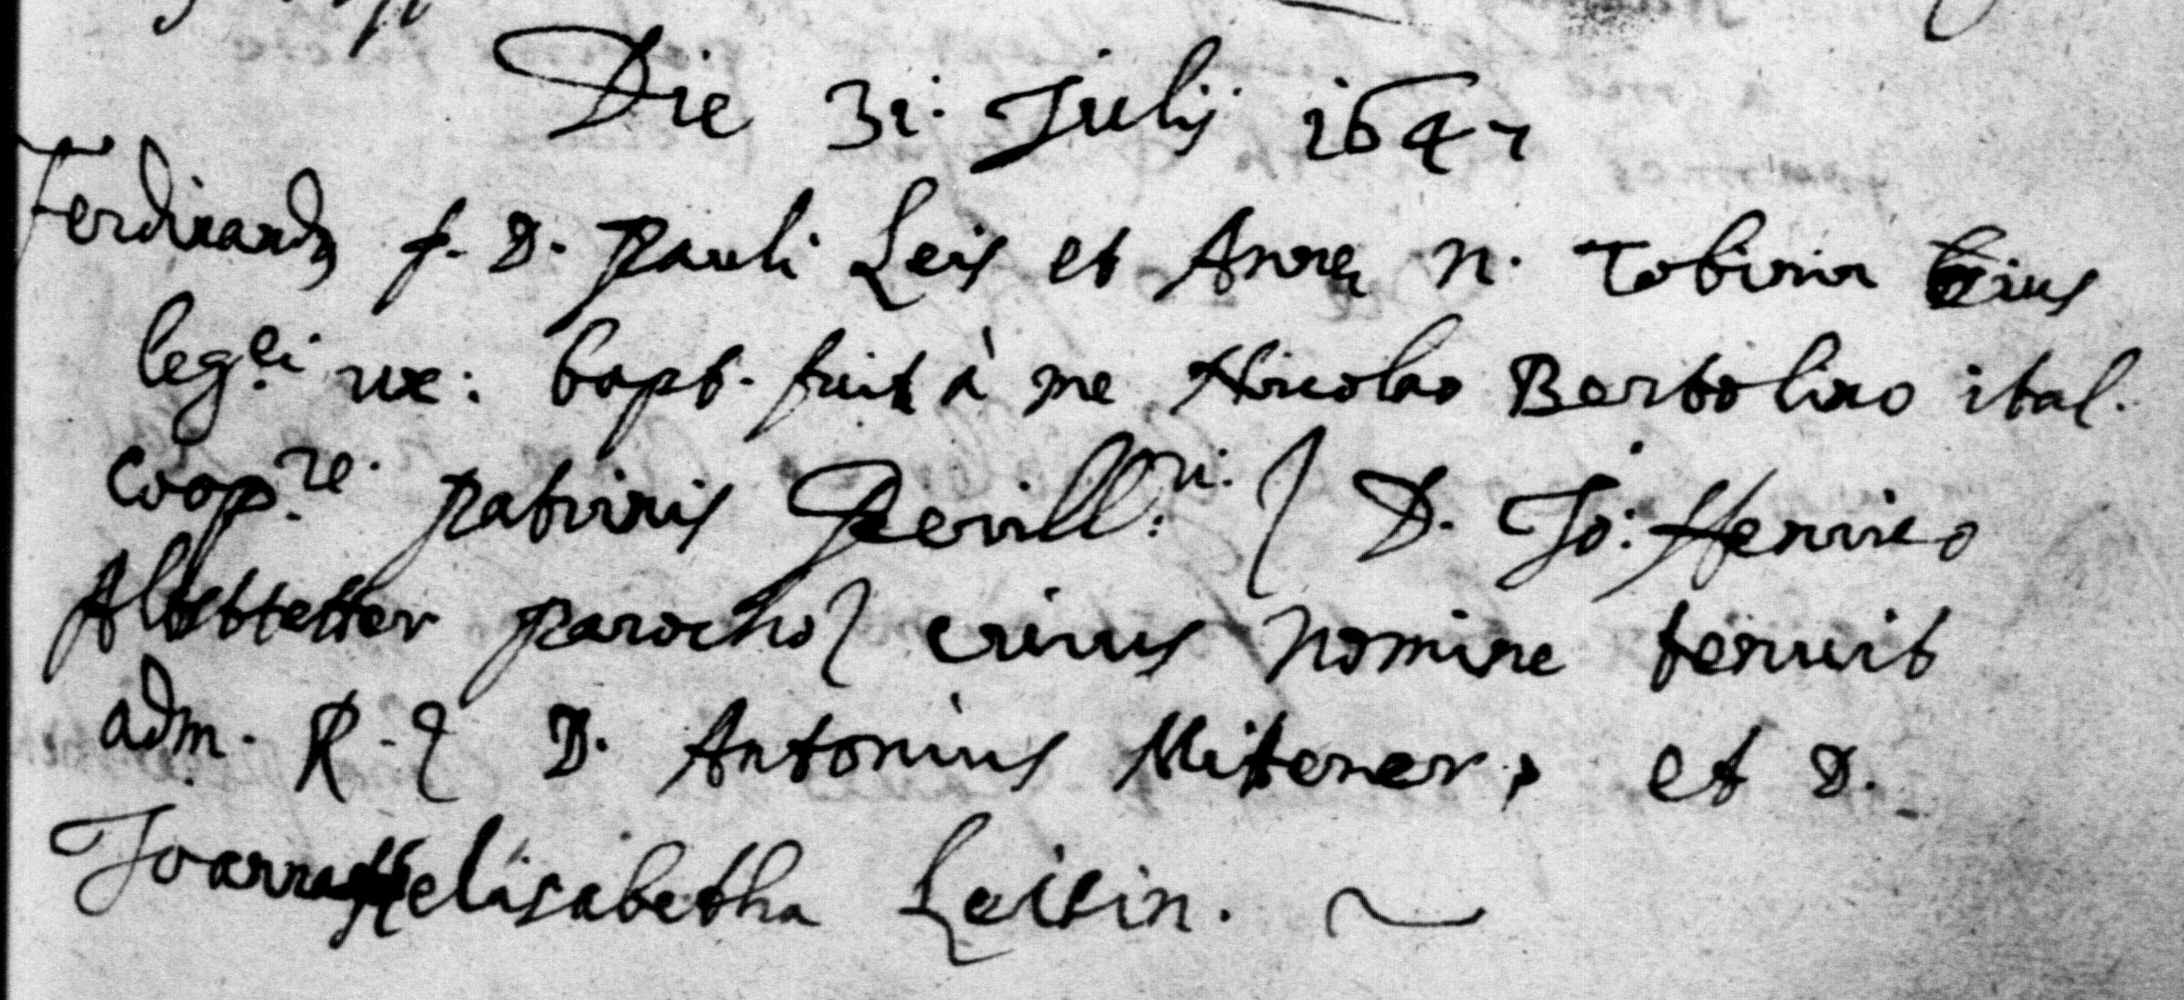 Die 31. Julij 1647
Ferdinandq f. D. Pauli Leis et Annę n. Tobinin eius
leg.ei ux: bapt. fuit à me Nicolao Bertolino ital.
coop.re. patrinis D. Jo: Henrico
Altstetter parocho cuius nomine tenuit
adm. R. D. Antonius Mitterer, et D.
Joanna Helisabetha Leisin.